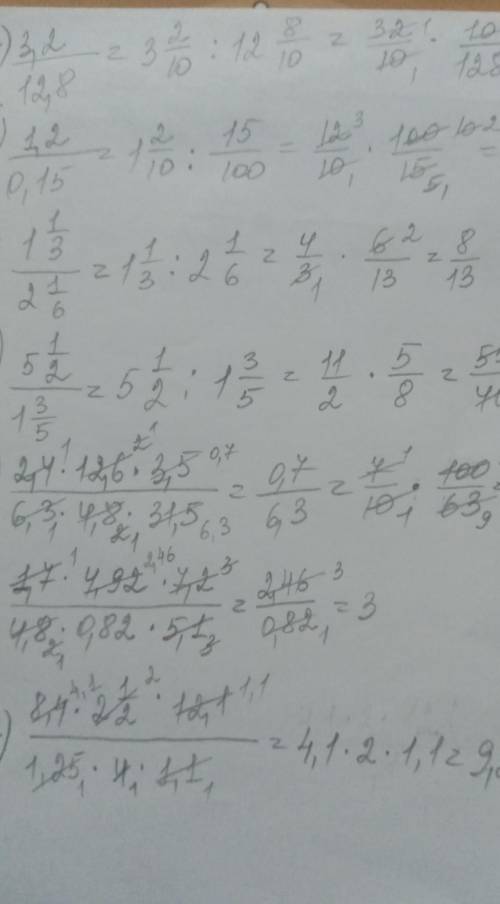 3,2/12,8 = 3 2/10 : 12 8/10 = 32/10 · 10/128
1,2/0,15 = 1 2/10 : 15/100 = 12/10 · 100/15 =
1 1/3 / 2 1/6 = 1 1/3 : 2 1/6 = 4/3 · 6/13 = 8/13
5 1/2 / 1 3/5 = 5 1/2 : 1 3/5 = 11/2 · 5/8 =
2,4 · 12,6 · 3,5 / 6,3 · 4,8 · 31,5 = 0,7/6,3 = 7/10 · 100/63 =
1,7 · 4,92 · 7,2 / 4,8 · 0,82 · 5,1 = 2,46/0,82 = 3
8,4 · 2 1/2 · 12,1 / 1,25 · 4 · 1,1 = 4,1 · 2 · 1,1 = 9,